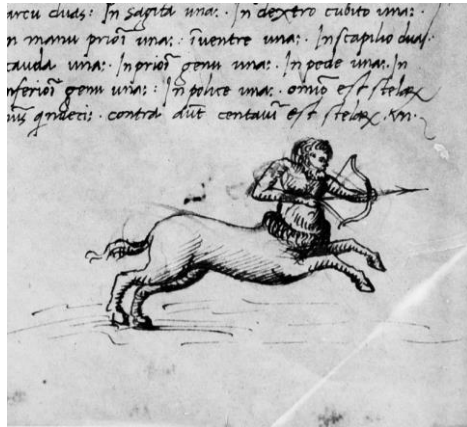 arcu duas: In Sagita una: In dextro cubito una:
n manu priori una: iventre una: In scapilio duas
cauda una: In priori genu una: In pede una: In
nferiori genu una: In police una: omīo est stelaꝝ
contra aut centauri est stelaꝝ